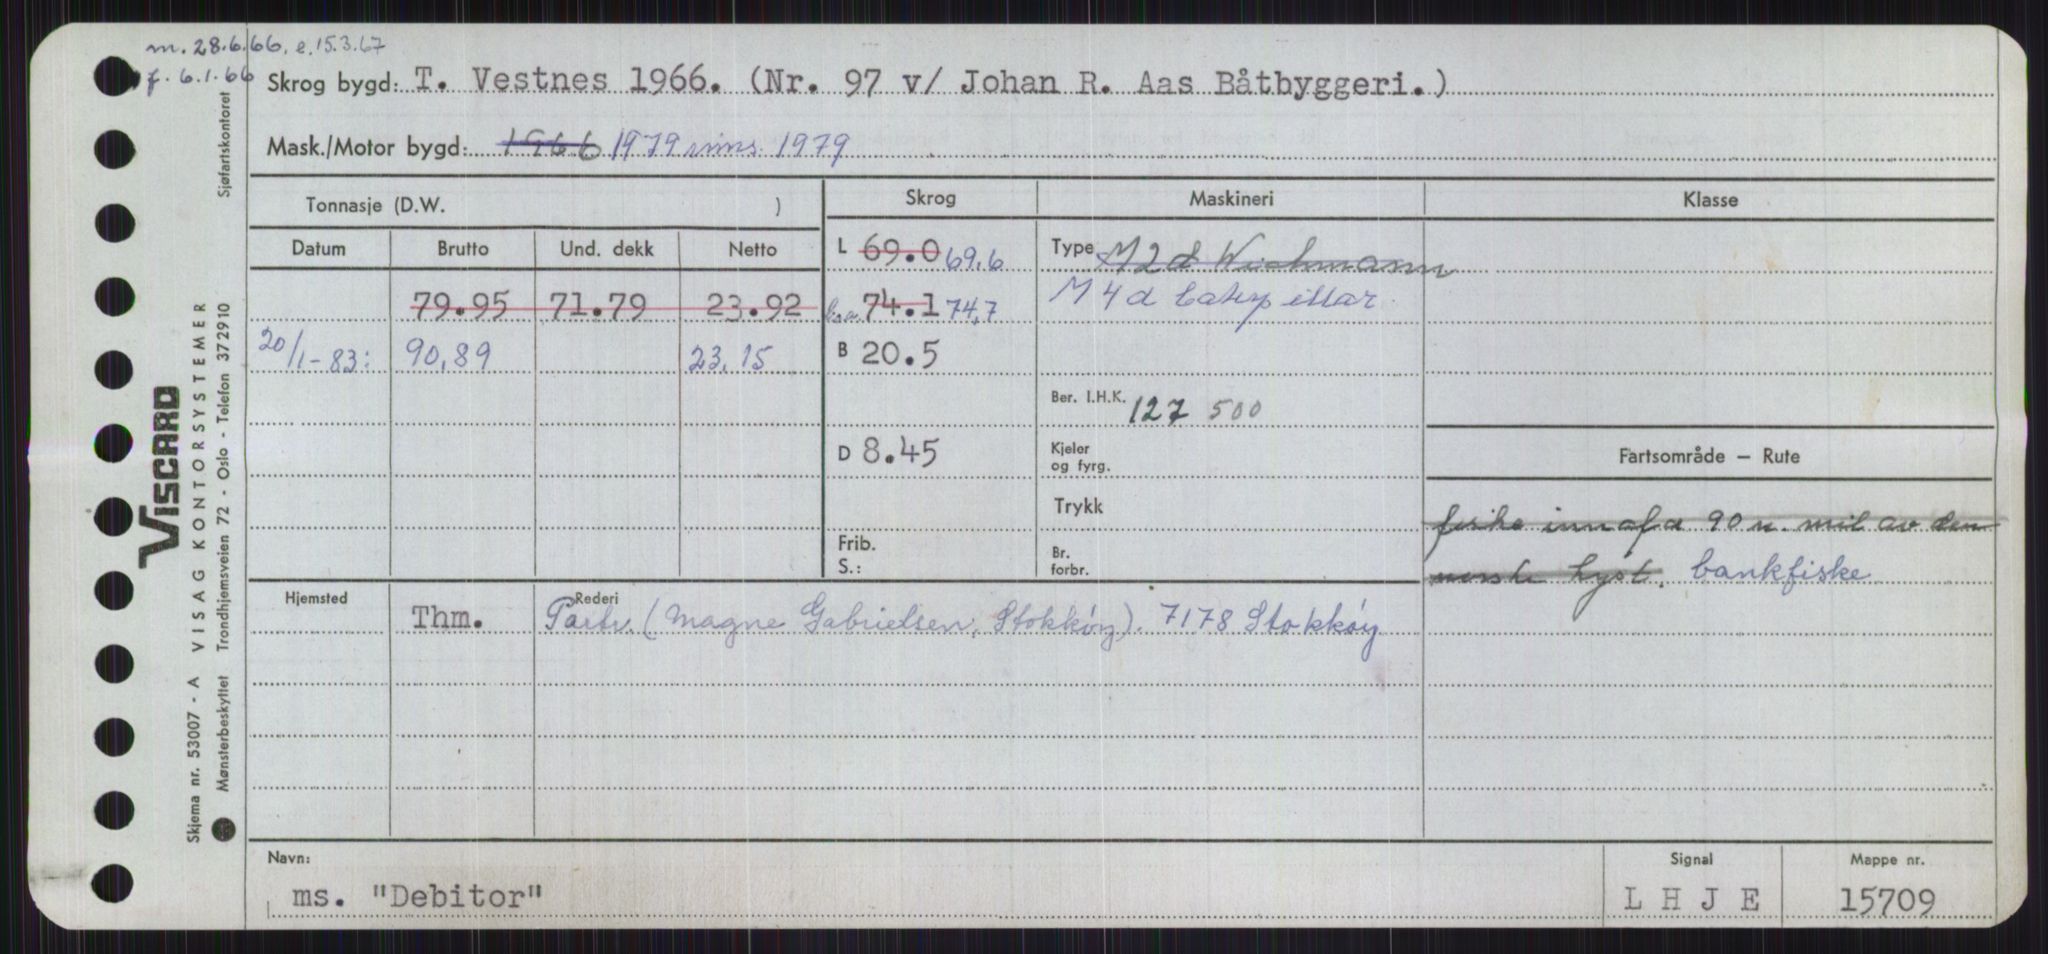 m. 28.6.66, e. 15.3.67
f. 6.1.66
Skrog bygd: T. Vestnes 1966. (Nr. 97 v/ Johan R. Aas Båtbyggeri.)
Mask./Motor bygd: 1966 1979 inns. 1979
Tonnasje (D.W. )
Skrog Maskineri Klasse
Datum Brutto Und. dekk Netto
L 69.0 69,6
Type M2d Wichmann
79.95 71.79 23.92
74.1 74,7
M4d Caterpillar
20/1-83: 90,89 23,15
B 20.5
Ber. I.H.K. 127 500
D 8.45
Kjeler
og fyrg.
Fartsområde — Rute
Trykk
fiske innafa 90 n. mil av den
norske kyst. bankfiske
Frib.
S.:
Br.
forbr.
Hjemsted Rederi
Thm. Partr. (Magne Gabrielsen, Stokkøy). 7178 Stokkøy
Navn: Signal Mappe nr.
ms. "Debitor" L H J E 15709
Sjøfartskontoret
VISCARD
VISAG KONTORSYSTEMER
Trondhjemsveien 72 - Oslo - Telefon 372910
Skjema nr. 53007 - A
Mønsterbeskyttet